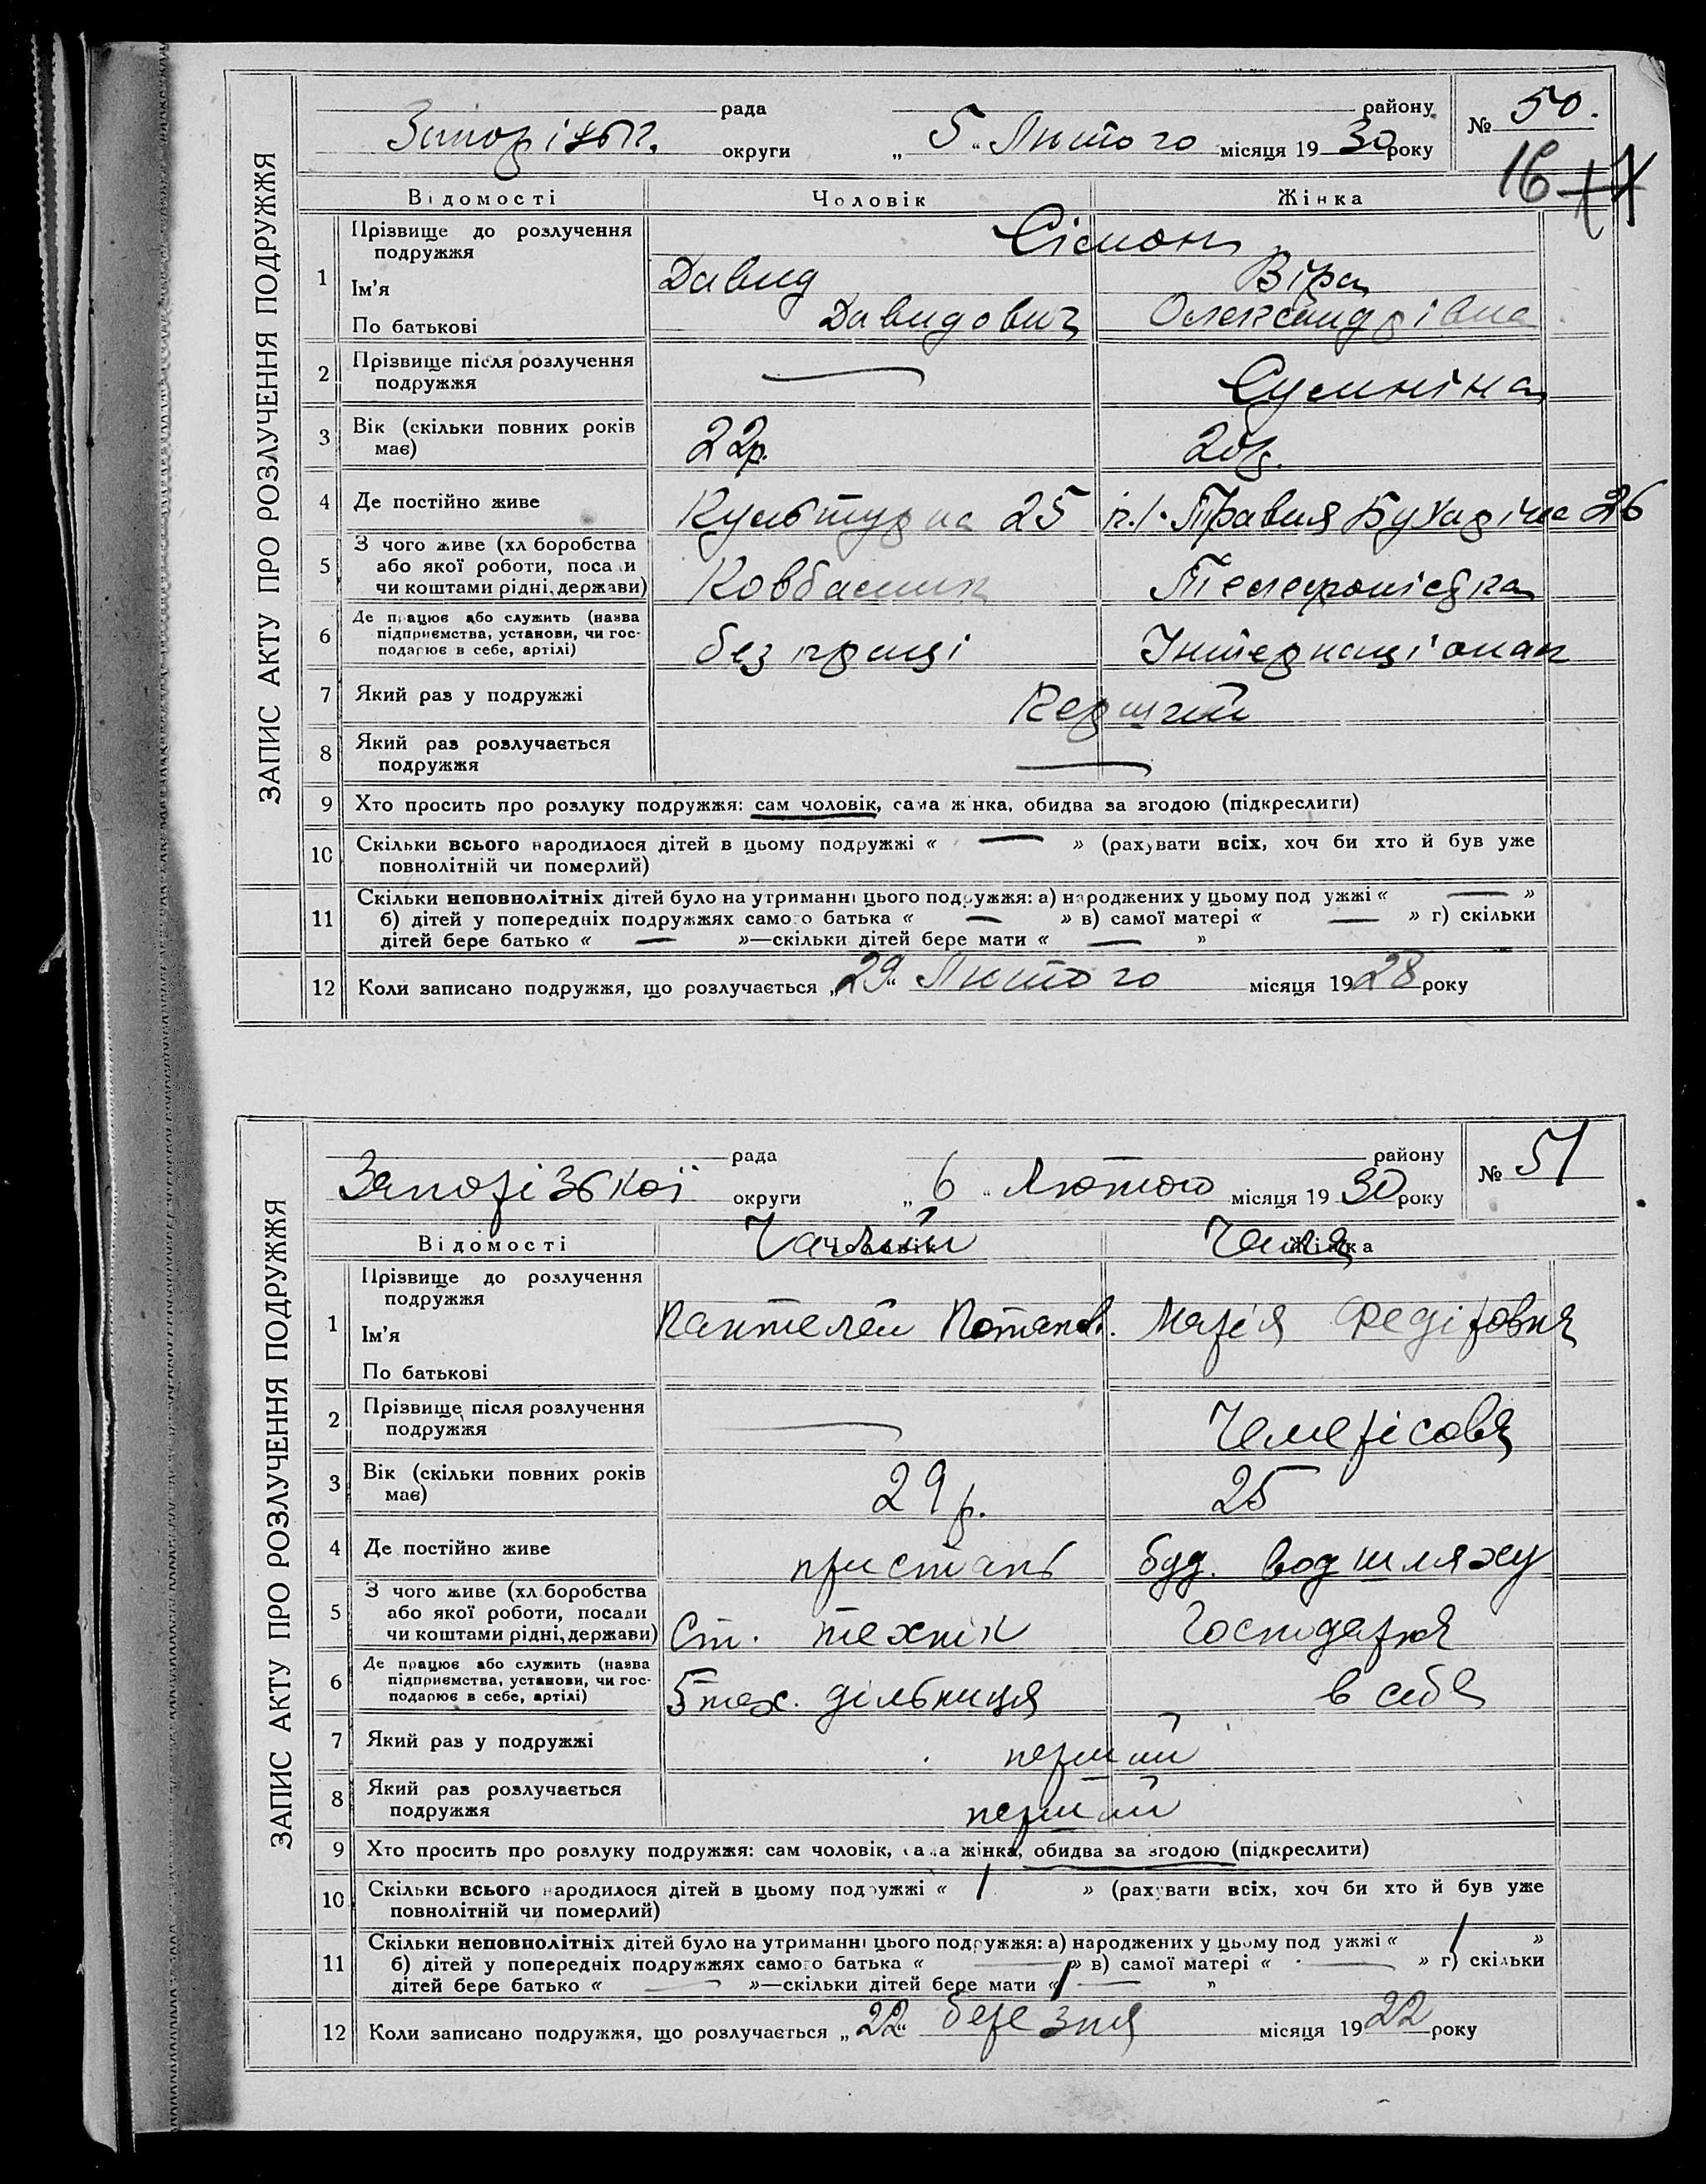 ЗАПИС АКТУ ПРО РОЗЛУЧЕННЯ ПОДРУЖЖЯ
рада району
округи „5“ Лютого місяця 1930 року
№ 50.
16
Відомості Чоловік Жінка
1 Прізвище до розлучення подружжя Сімон
Ім'я Давид Віра
По батькові Давидович Олександрівна
2 Прізвище після розлучення подружжя — Суміна
3 Вік (скільки повних років має) 22р. 20р.
4 Де постійно живе Культурна 25 Травня 26
5 З чого живе (хл боробства або якої роботи, посади чи коштами рідні, держави) Ковбасник Телефоністка
6 Де працює або служить (назва підприємства, установи, чи господарює в себе, артілі) без праці Інтернаціонал
7 Який раз у подружжі Перший
8 Який раз розлучається подружжя —
9 Хто просить про розлуку подружжя: сам чоловік, сама жінка, обидва за згодою (підкреслити)
10 Скільки всього народилося дітей в цьому подружжі « — » (рахувати всіх, хоч би хто й був уже
повнолітній чи померлий)
11 Скільки неповнолітніх дітей було на утриманні цього подружжя: а) народжених у цьому подружжі « — »
б) дітей у попередніх подружжях самого батька « — » в) самої матері « — » г) скільки
дітей бере батько « — »—скільки дітей бере мати « — »
12 Коли записано подружжя, що розлучається „29“ Лютого місяця 1928 року
ЗАПИС АКТУ ПРО РОЗЛУЧЕННЯ ПОДРУЖЖЯ
рада району
Запорізької округи „6“ Лютого місяця 1930 року
№ 51
Відомості Чоловік Жінка
Чалий
1 Прізвище до розлучення подружжя
Ім'я Пантелей Потапов. Марія Федіровня
По батькові
2 Прізвище після розлучення подружжя — Чемерісовя
3 Вік (скільки повних років має) 29 р. 25
4 Де постійно живе пристань буд. водшляху
5 З чого живе (хл.боробства або якої роботи, посади чи коштами рідні, держави) Ст. технік Господарня
6 Де працює або служить (назва підприємства, установи, чи господарює в себе, артілі) 5 тех. дільниця в себя
7 Який раз у подружжі перший
8 Який раз розлучається подружжя перший
9 Хто просить про розлуку подружжя: сам чоловік, сама жінка, обидва за згодою (підкреслити)
10 Скільки всього народилося дітей в цьому подружжі « 1 » (рахувати всіх, хоч би хто й був уже
повнолітній чи померлий)
11 Скільки неповнолітніх дітей було на утриманні цього подружжя: а) народжених у цьому подружжі « 1 »
б) дітей у попередніх подружжях самого батька « — » в) самої матері « — » г) скільки
дітей бере батько « — »—скільки дітей бере мати « 1 — »
12 Коли записано подружжя, що розлучається „22“ березня місяця 1922 року